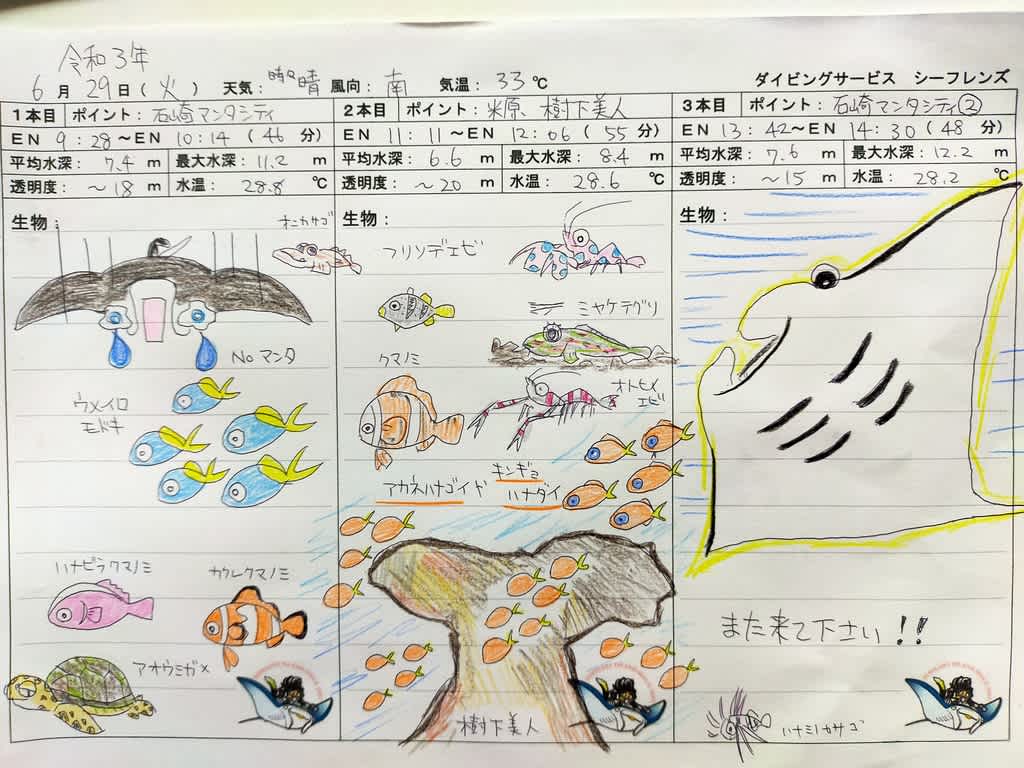 令和3年
6月29日(火) 天気：晴々晴 風向：南 気温：33℃
ダイビングサービス シーフレンズ
1本目 ポイント：石崎マンタシティ
EN 9:28～EN 10:14(46分)
平均水深：7.4m 最大水深：11.2m
透明度：～18m 水温：28.8℃
生物：
オニカサゴ
No マンタ
ウメイロ
モドキ
ハナビラクマノミ
カクレクマノミ
アオウミガメ
2本目 ポイント：米原 樹下美人
EN 11:11～EN 12:06(55分)
平均水深：6.6m 最大水深：8.4m
透明度：～20m 水温：28.6℃
生物：
フリソデエビ
ミヤケテグリ
クマノミ
オトヒメ
エビ
キンギョ
ハナダイ
アカネハナゴイド
樹下美人
3本目 ポイント：石崎マンタシティ②
EN 13:42～EN 14:30(48分)
平均水深：7.6m 最大水深：12.2m
透明度：～15m 水温：28.2℃
生物：
また来て下さい!!
ハナミノカサゴ